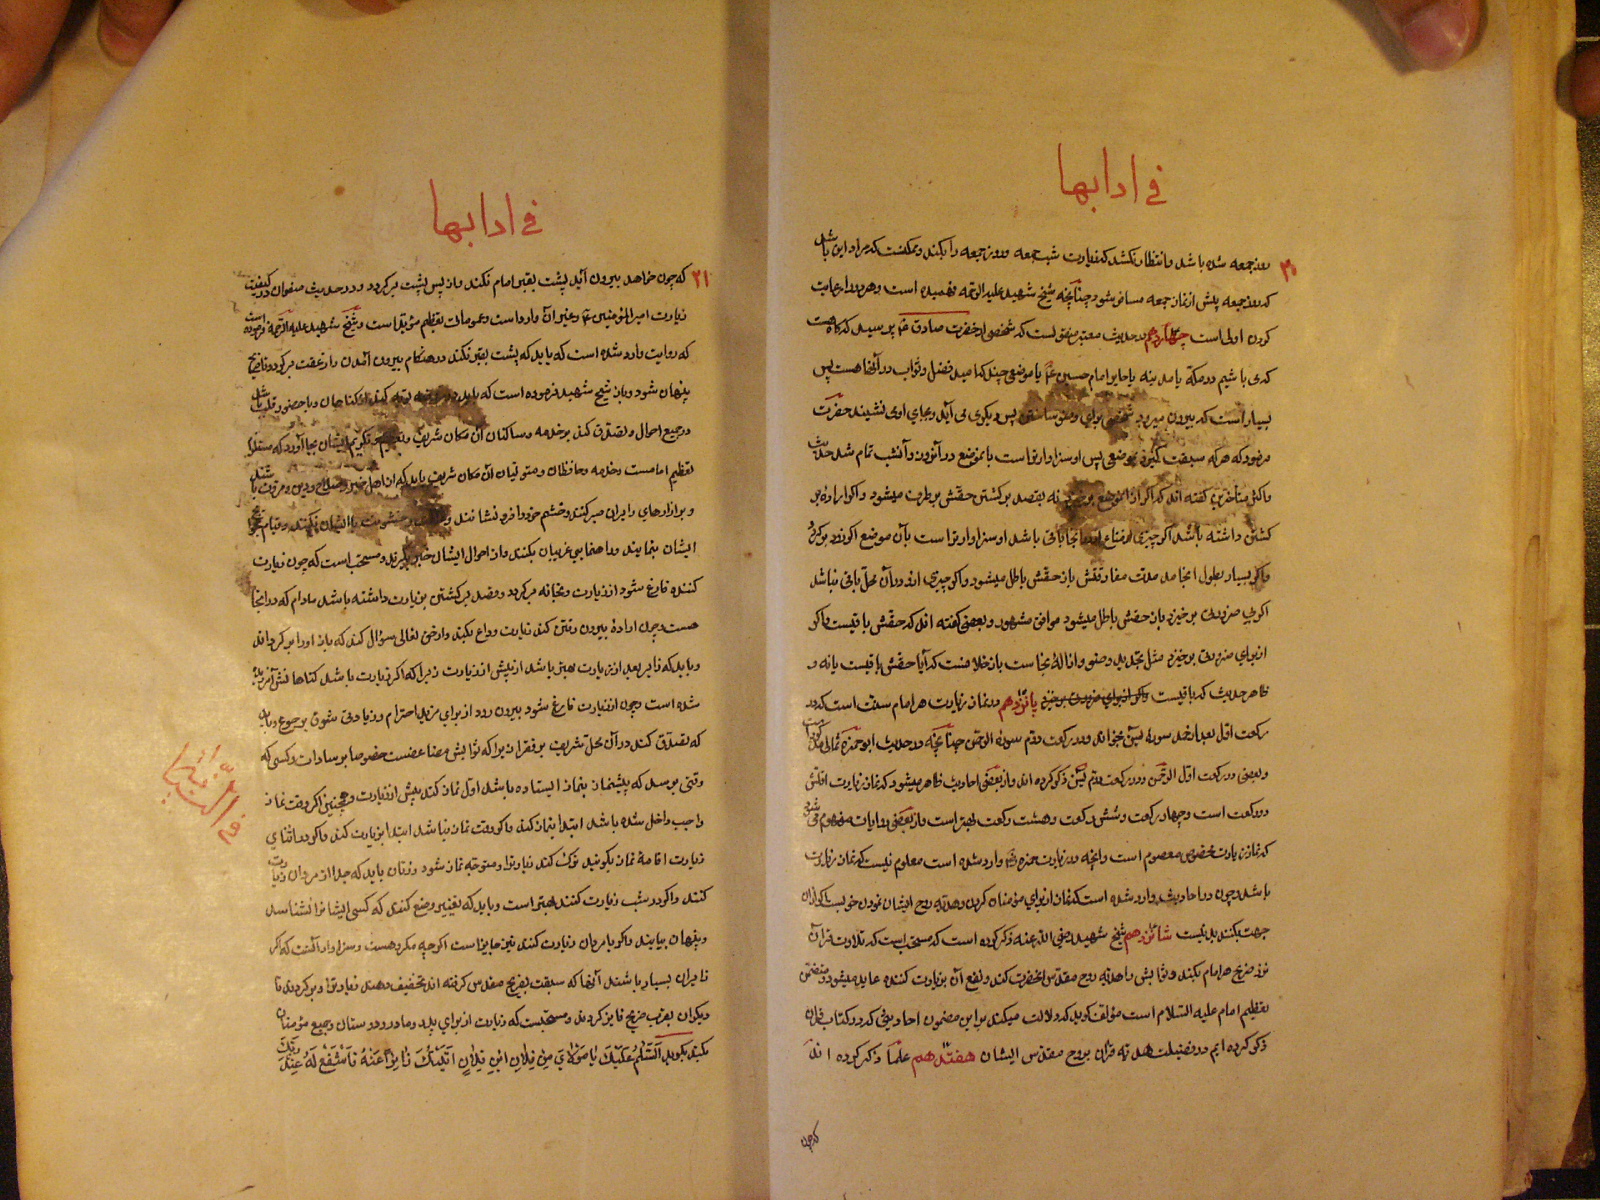 في ادابها
۳۰
روز جمعه شده باشد و انتظار نکشد که زیارت شب جمعه و روز جمعه را بکند و ممکنست که مراد این باشد
که روز جمعه پیش از نماز جمعه مسافر شود چنانچه شیخ شهید علیه الرحمه فهمیده است و هر دو را رعایت
کردن اولی است چهاردهم در حدیث معتبر منقولست که شخصی از حضرت صادق ع پرسید که گاه هست
که می باشیم در مکه یا مدینه یا حایر امام حسین ع یا موضعی چند که امید فضل و ثواب در آنجا هست پس
بسیار است که بیرون میرود شخصی برای وضو ساختن پس دیگری می آید و بجای او می نشیند حضرت
فرمود که هر که سبقت گیرد بموضعی پس او سزاوارتر است بآنموضع در آنروز و آنشب تمام شد حدیث
و اکثر متأخرین گفته اند که اگر از آنموضع برخیزد نه بقصد برگشتن حقش برطرف میشود و اگر اراده بر
گشتن داشته باشد اگر چیزی از متاع او در آنجا باقی باشد او سزاوارتر است بآن موضع اگر زود برگردد
و اگر بسیار بطول انجامد مدت مفارقتش باز حقش باطل میشود و اگر چیزی از او در آن محل باقی نباشد
اگر بی ضرورت برخیزد باز حقش باطل میشود موافق مشهور و بعضی گفته اند که حقش باقیست و اگر
از برای ضرورتی برخیزد مثل تجدید وضو و ازاله نجاست باز خلافست که آیا حقش باقیست یا نه و
ظاهر حدیث که باقیست پانزدهم در نماز زیارت هر امام سنت است که در
رکعت اول بعد از حمد سوره یس بخواند و در رکعت دوم سوره الرحمن چنانچه در حدیث ابو حمزه ثمالی مذکور است
و بعضی در رکعت اول الرحمن و در رکعت دوم یس ذکر کرده اند و از بعضی احادیث ظاهر میشود که نماز زیارت اقلش
دو رکعت است و چهار رکعت و شش رکعت و هشت رکعت بهتر است و از بعضی روایات مفهوم می شود
که نماز زیارت مخصوص معصوم است و آنچه در زیارت حمزه وارد شده است معلوم نیست که نماز زیارت
باشد چون در احادیث وارد شده است که نماز از برای مؤمنان کردن و هدیه روح ایشان نمودن خوب است اگر از آن
جهت بکند بد نیست شانزدهم شیخ شهید رضی الله عنه ذکر کرده است که مستحب است که تلاوت قرآن
نزد ضریح هر امام بکند و ثوابش را هدیه روح مقدس آنحضرت کند و نفع آن بزیارت کننده عاید میشود و متضمن
تعظیم امام علیه السلام است مؤلف گوید که دلالت میکند بر این مضمون احادیثی که در کتاب قرآن
ذکر کرده ایم در فضیلت هدیه قرآن بروح مقدس ایشان هفتدهم علما ذکر کرده اند
که چون
في ادابها
۳۱
که چون خواهد بیرون آید پشت بقبر امام نکند و از پس پشت برگردد و در حدیث صفوان در کیفیت
زیارت امیر المؤمنین ع و غیر آن وارد است و عمومات تعظیم مؤید است و شیخ شهید علیه الرحمة فرموده است
که روایت وارد شده است که باید که پشت بقبر نکند در هنگام بیرون آمدن و از عقب برگردد تا ضریح
پنهان شود و باز شیخ شهید فرموده است که باید در هر مرتبه توبه کند از گناهان و با حضور قلب باشد
در جمیع احوال و تصدق کند بر خدمه و ساکنان آن مکان شریف و تعظیم و تکریم ایشان بجا آورد که مستلزم
تعظیم امامست و خدمه و حافظان و متولیان آن مکان شریف باید که از اهل خیر و صلاح و دین و مروت باشند
و بر آزارهای زایران صبر کنند و خشم خود را فرو نشانند و غلظت و خشونت با ایشان نکنند و قیام بحوایج
ایشان بنمایند و راهنمایی غریبان بکنند و از احوال ایشان خبر بگیرند و مستحب است که چون زیارت
کننده فارغ شود از زیارت و بخانه برگردد و قصد برگشتن بزیارت داشته باشد مادام که در آنجا
هست و چون اراده بیرون رفتن کند زیارت وداع بکند و از حق تعالی سؤال کند که باز او را برگرداند
و باید که زایر بعد از زیارت بهتر باشد از پیش از زیارت زیرا که اگر زیارت باشد گناهانش آمرزیده
شده است و چون از زیارت فارغ شود بیرون رود از برای مزید احترام و زیادتی شوق برجوع و باید
که تصدق کند در آن محل شریف بر فقرا زیرا که ثوابش مضاعفست خصوصا بر سادات و کسی که
وقتی برسد که پیشنماز بنماز ایستاده باشد اول نماز کند پیش از زیارت و همچنین اگر وقت نماز
واجب داخل شده باشد ابتدا بنماز کند و اگر وقت نماز نباشد ابتدا بزیارت کند و اگر در اثنای
زیارت اقامه نماز بگویند ترک کند زیارت را و متوجه نماز شود و زنان باید که جدا از مردان زیارت
کنند و اگر در شب زیارت کنند بهتر است و باید که تغییر وضع کنند که کسی ایشان را نشناسد
و پنهان بیایند و اگر با مردان زیارت کنند نیز جایز است اگرچه مکروهست و سزاوار آنست که اگر
زایران بسیار باشند آنها که سبقت بضریح مقدس گرفته اند تخفیف دهند زیارت را و برگردند تا
دیگران بقرب ضریح فایز گردند و مستحبست که زیارت از برای پدر و مادر و دوستان و جمیع مؤمنان
بکند بگوید اَلسَّلامُ عَلَیْكَ یا مَوْلایَ مِنْ فُلانِ ابْنِ فُلانٍ اَتَیْتُكَ زائِراً عَنْهُ فَاشْفَعْ لَهُ عِنْدَ رَبِّكَ